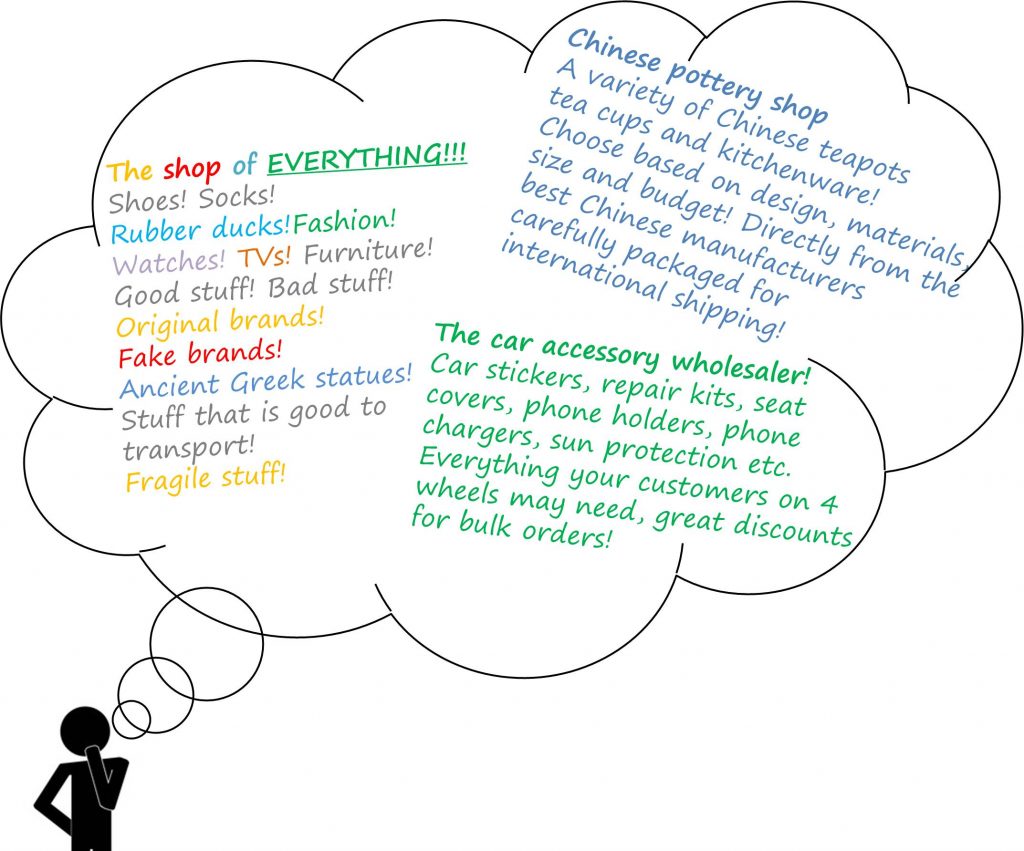 The shop of EVERYTHING!!!
Shoes! Socks!
Rubber ducks!Fashion!
Watches! TVs! Furniture!
Good stuff! Bad stuff!
Original brands!
Fake brands!
Ancient Greek statues!
Stuff that is good to
transport!
Fragile stuff!
Chinese pottery shop
A variety of Chinese teapots
tea cups and kitchenware!
Choose based on design, materials,
size and budget! Directly from the
best Chinese manufacturers
carefully packaged for
international shipping!
The car accessory wholesaler!
Car stickers, repair kits, seat
covers, phone holders, phone
chargers, sun protection etc.
Everything your customers on 4
wheels may need, great discounts
for bulk orders!